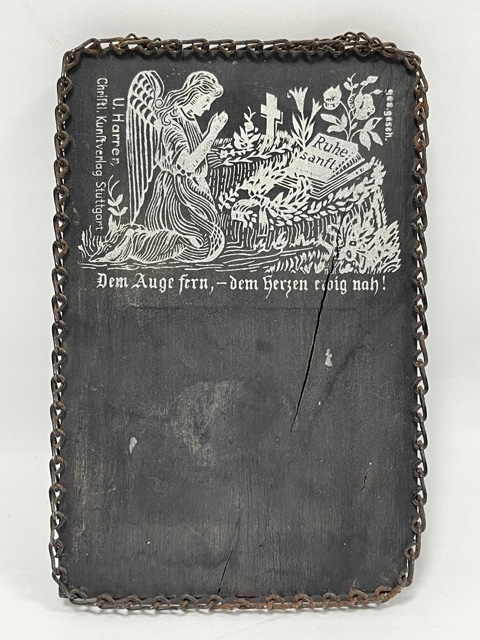 U. Harrer,
Christl. Kunstverlag Stuttgart
ges. gesch.
Ruhe
sanft!
Dem Auge fern, – dem Herzen ewig nah!